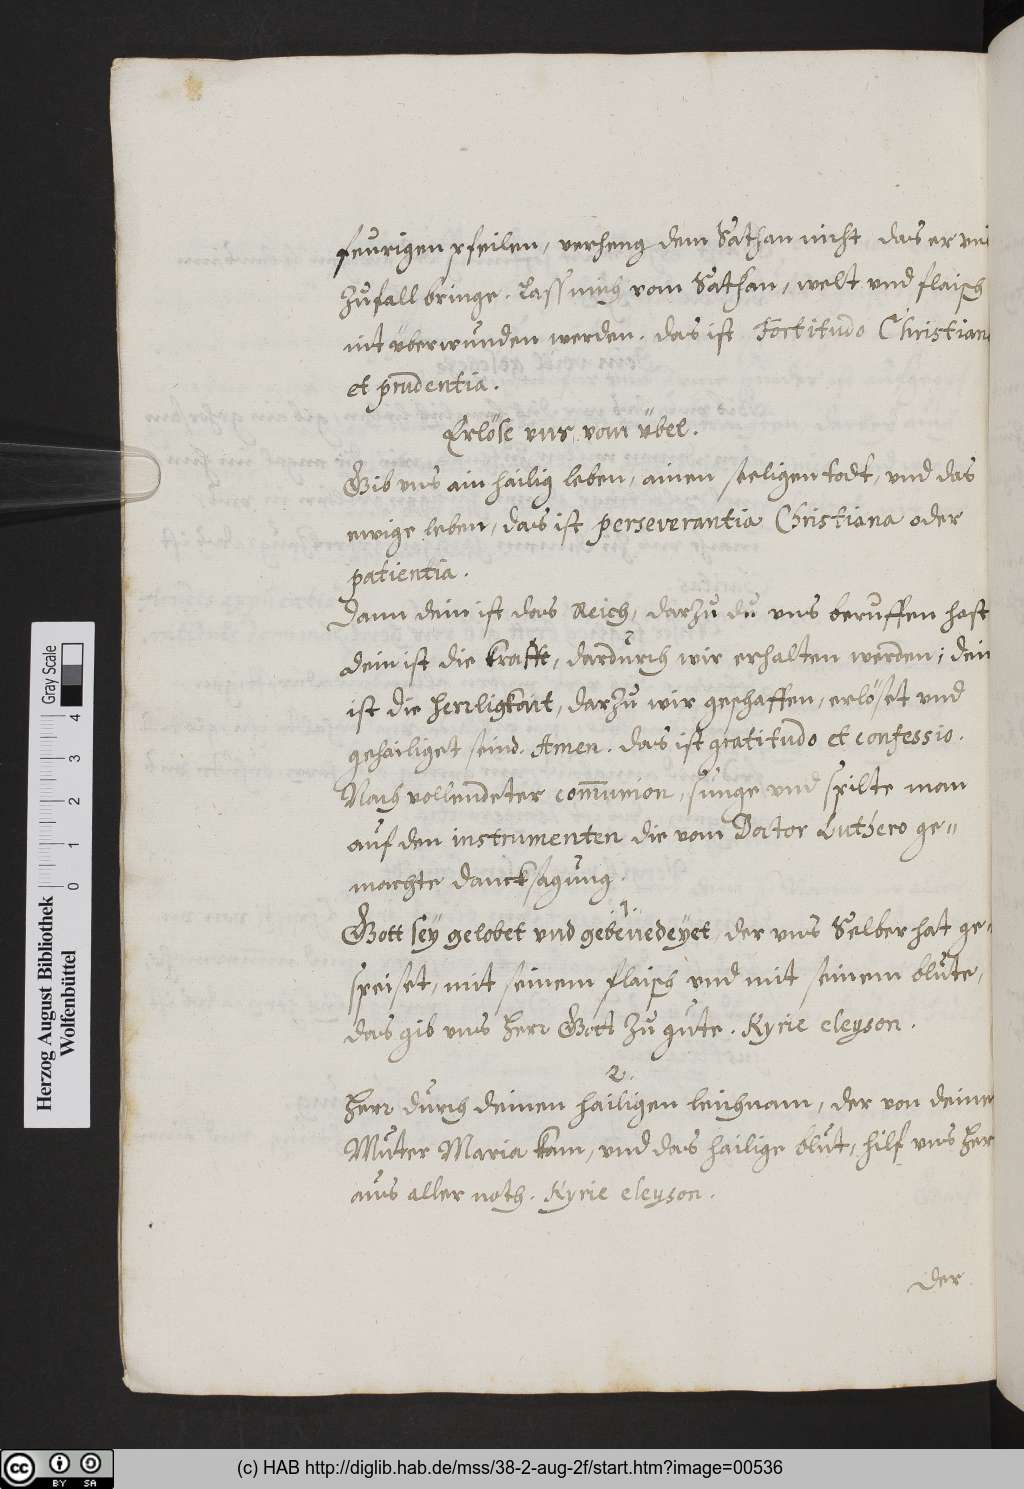 feurigen pfeilen, verheng dem Sathan nicht, das er
Zufall bringe. Lass mich vom Sathan, welt und flaisch
nit überwunden werden. das ist Fortitudo Christiana
et prudentia.
Erlöse uns vom übel.
Gib uns ain hailig leben, ainen seeligen todt, und das
ewige leben, das ist perseverantia Christiana oder
patientia.
Dann dein ist das Reich, darzu du uns beruffen hast
dein ist die krafft, dardurch wir erhalten werden; dein
ist die herrligkait, darzu wir geschaffen, erlöset und
gehailiget seind. Amen. das ist gratitudo et confessio.
Nach vollendeter com̃union, sunge und spilte man
auf den instrumenten die vom Doctor Luthero ge=
machte dancksagung.
1.
Gott seÿ gelobet und gebenedeÿet, der uns Selber hat ge=
speiset, mit seinem flaisch und mit seinem blute,
das gib uns Herr Gott zu gute. Kyrie eleyson.
2.
Herr durch deinen hailigen leichnam, der von deiner
Muter Maria kam, und das hailige blut, hilf uns Herr
aus aller noth. Kyrie eleyson.
der
Herzog August Bibliothek
Wolfenbüttel
0 1 2 3 4
Gray Scale
cc BY SA
(c) HAB http://diglib.hab.de/mss/38-2-aug-2f/start.htm?image=00536